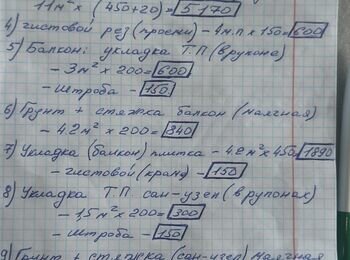 11м² х (450+20)= 5170
4) чистовой рез (проемы) - 4м.п х 150= 600
5) Балкон: укладка Т.П (в рулоне)
- 3м² х 200= 600
- штроба - 150
6) Грунт + стяжка балкон (маячная)
- 4.2м² х 200= 840
7) Укладка (балкон) плитка - 4.2м² х 450= 1890
- чистовой (края) - 150
8) Укладка Т.П сан-узел (в рулонах)
- 1,5м² х 200= 300
- штроба - 150
9) Грунт + стяжка (сан-узел) маячная